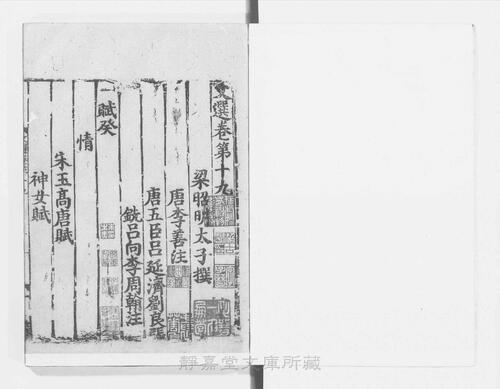 文選卷第十九
梁昭明太子撰
唐李善注
唐五臣呂延濟劉良張
銑呂向李周翰注
賦癸
情
宋玉高唐賦
神女賦
靜嘉堂文庫所藏